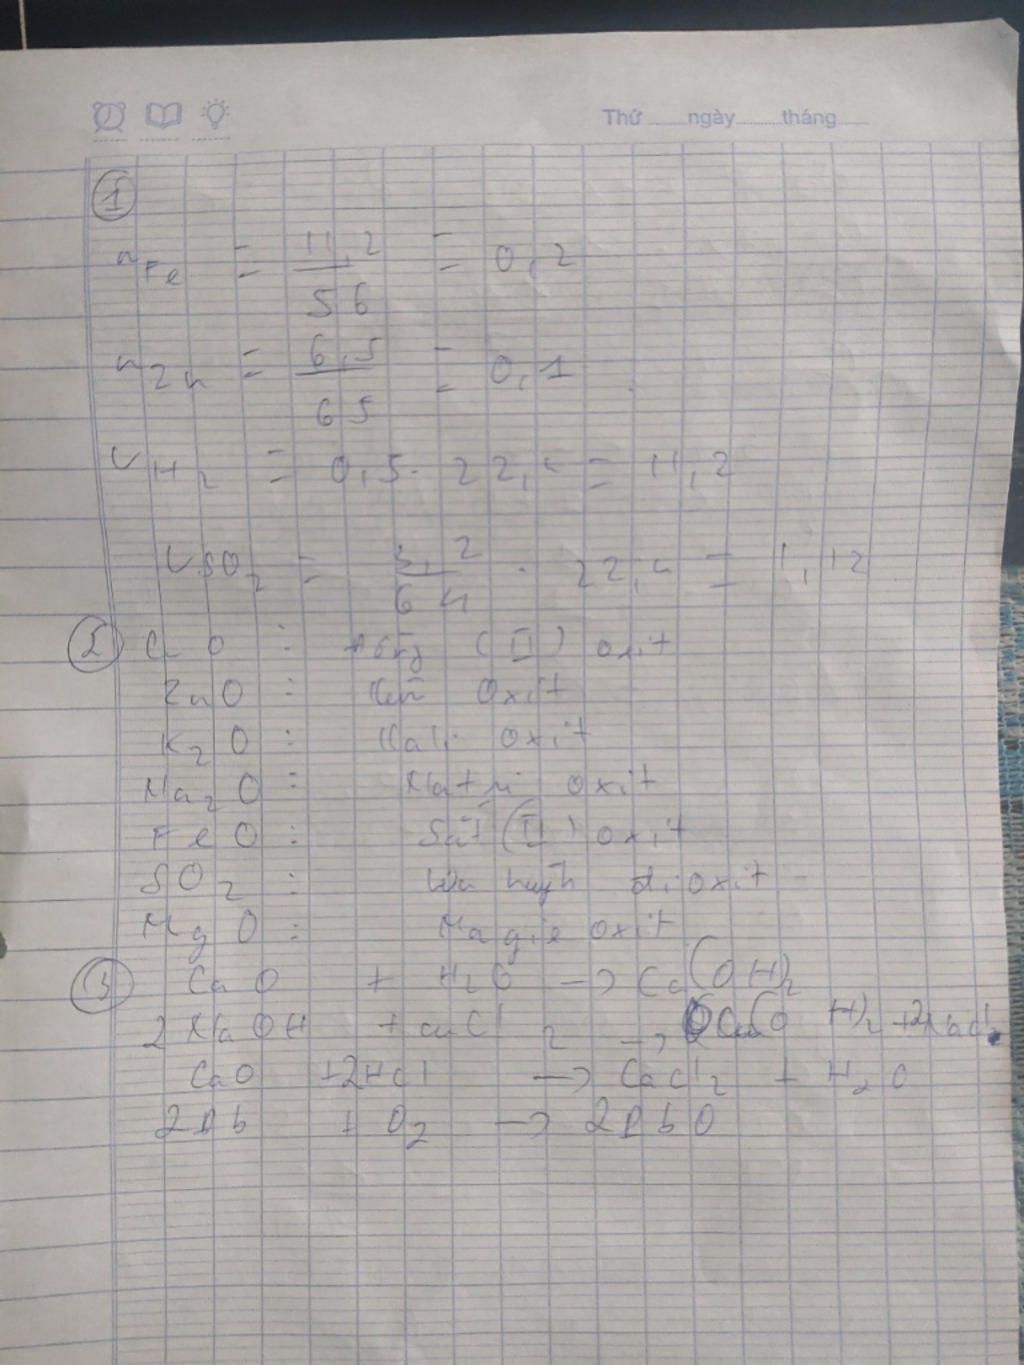 Thứ ........ngày..........tháng........
①
nFe = 11,2 / 56 = 0,2
nZn = 6,5 / 65 = 0,1
VH2 = 0,5 . 22,4 = 11,2
VSO2 = 3,2 / 64 . 22,4 = 1,12
② CuO : đồng (II) oxit
ZnO : Kẽm Oxit
K2O : Kali oxit
Na2O : Natri oxit
FeO : Sắt (II) oxit
SO2 : Lưu huỳnh đioxit
MgO : Magie oxit
③ CaO + H2O → Ca(OH)2
2NaOH + CuCl2 → Cu(OH)2 + 2NaCl
CaO + 2HCl → CaCl2 + H2O
2Pb + O2 → 2PbO